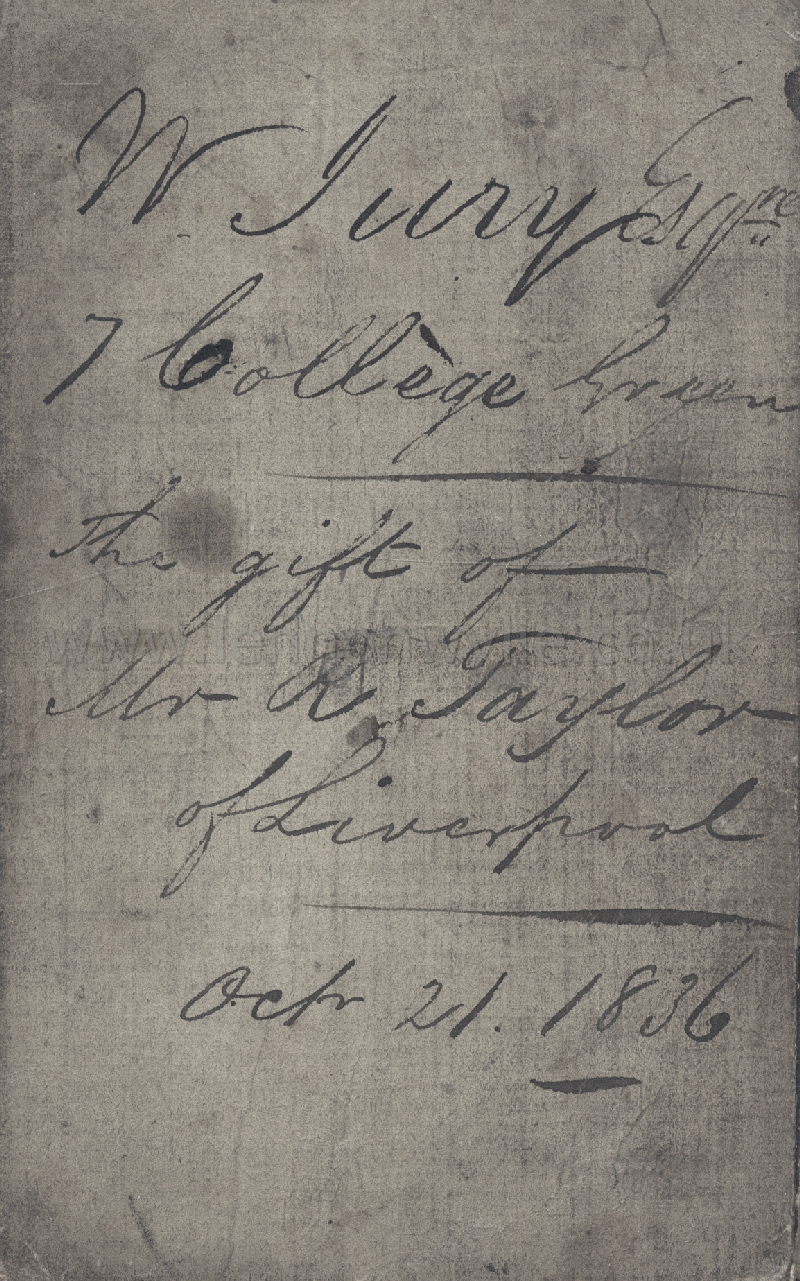 W. Jury Esqre
7 College Green
The gift of
Mr R Taylor
of Liverpool
Octr 21. 1836